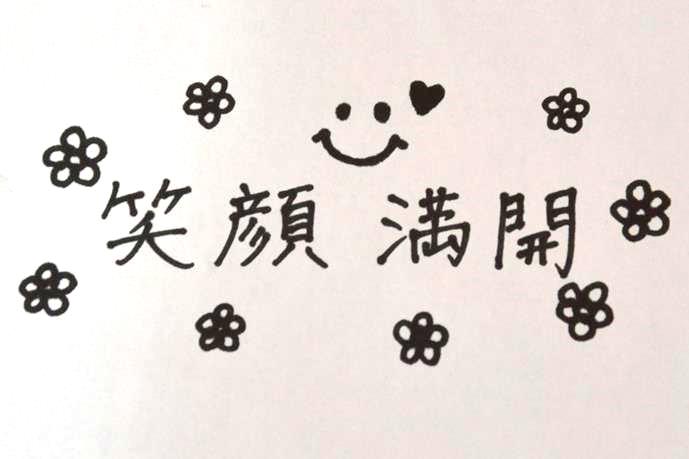 笑顔満開